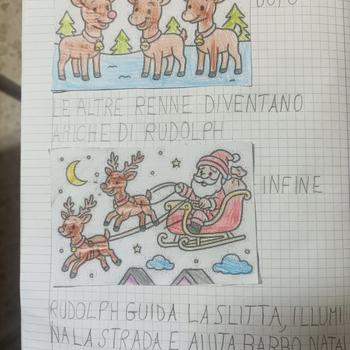 DOPO
LE ALTRE RENNE DIVENTANO
AMICHE DI RUDOLPH
INFINE
RUDOLPH GUIDA LA SLITTA, ILLUMI
NA LA STRADA E AIUTA BABBO NATAL